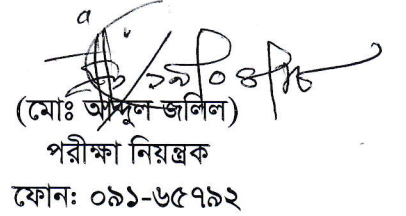 (মোঃ আব্দুল জলিল)
পরীক্ষা নিয়ন্ত্রক
ফোন: ০৯১-৬৫৭৯২